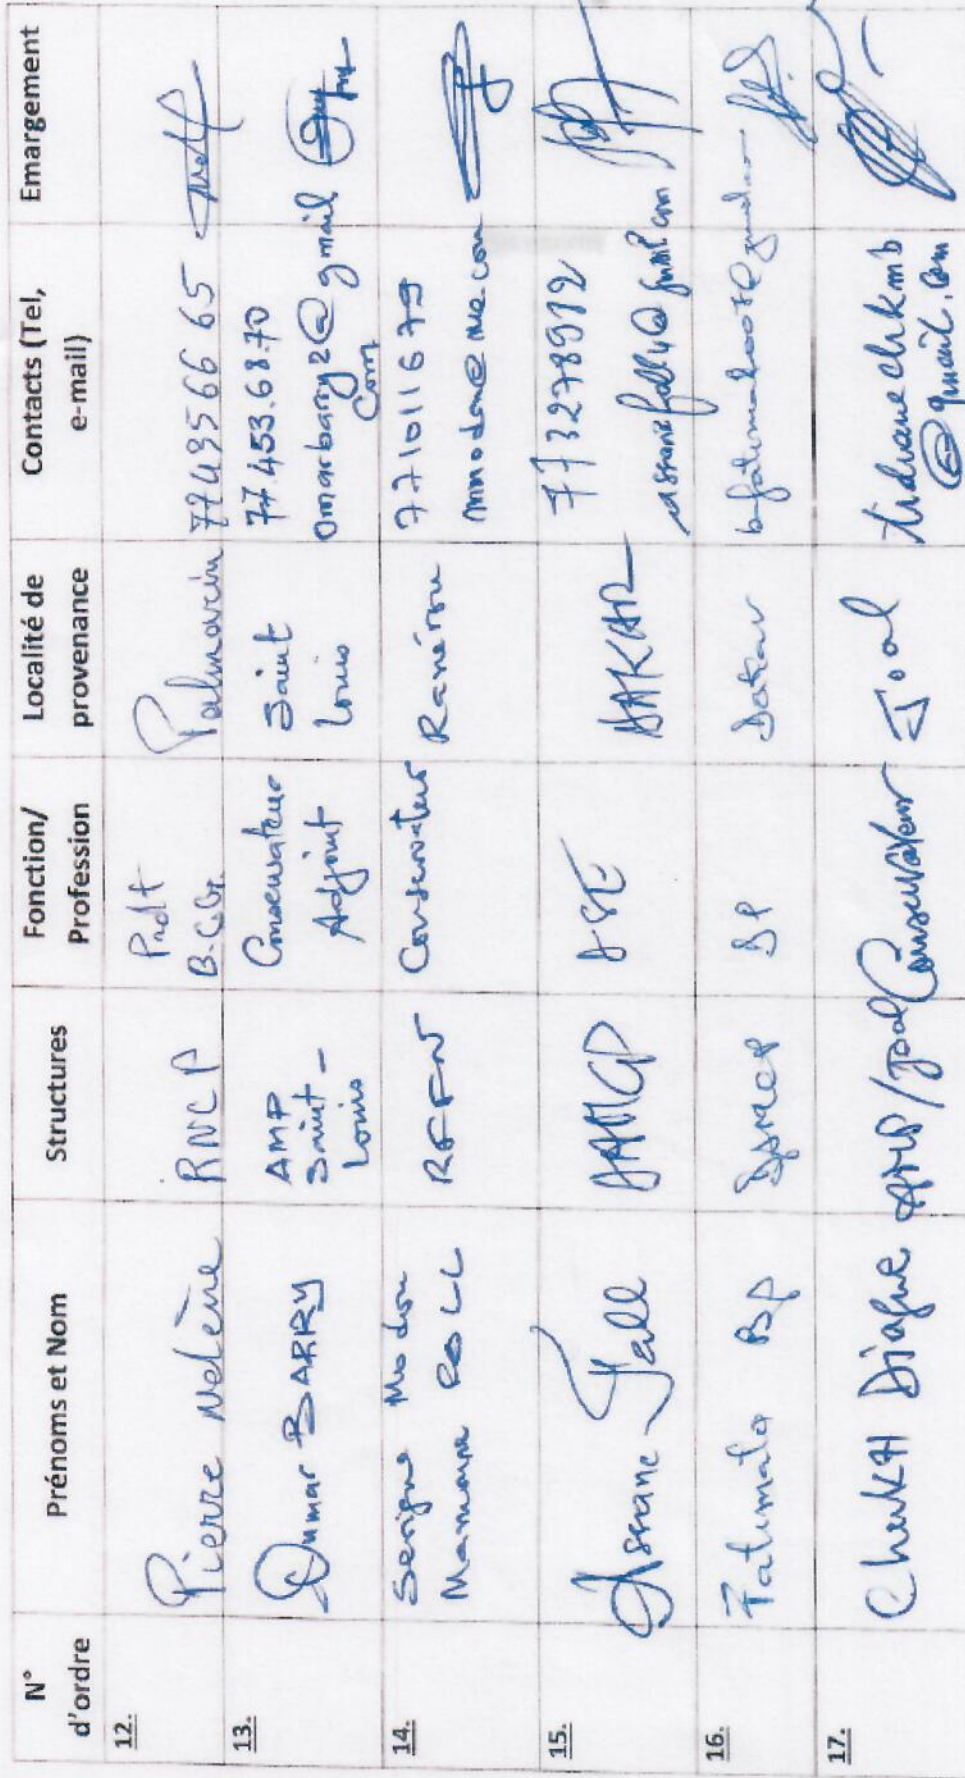 N° d'ordre
Prénoms et Nom
Structures
Fonction/ Profession
Localité de provenance
Contacts (Tel, e-mail)
Emargement
12.
Pierre Ndème
RNCP
Pdt
Palmarin
13.
Oumar BARRY
AMP
Saint-
Louis
Conservateur
Adjoint
Saint
Louis
77.453.68.70
Omarbarry2@gmail
Com
14.
Serigne Modou
Mamoune
RFFN
Conservateur
Ranérou
771011679
15.
Assane Fall
DAMCP
DAKAR
773278912
assanefall4@gmail.com
16.
Fatimata BA
DAMCP
Dakar
17.
CheikH Diagne
AMP/Joal
Conservateur
Joal
@gmail.com